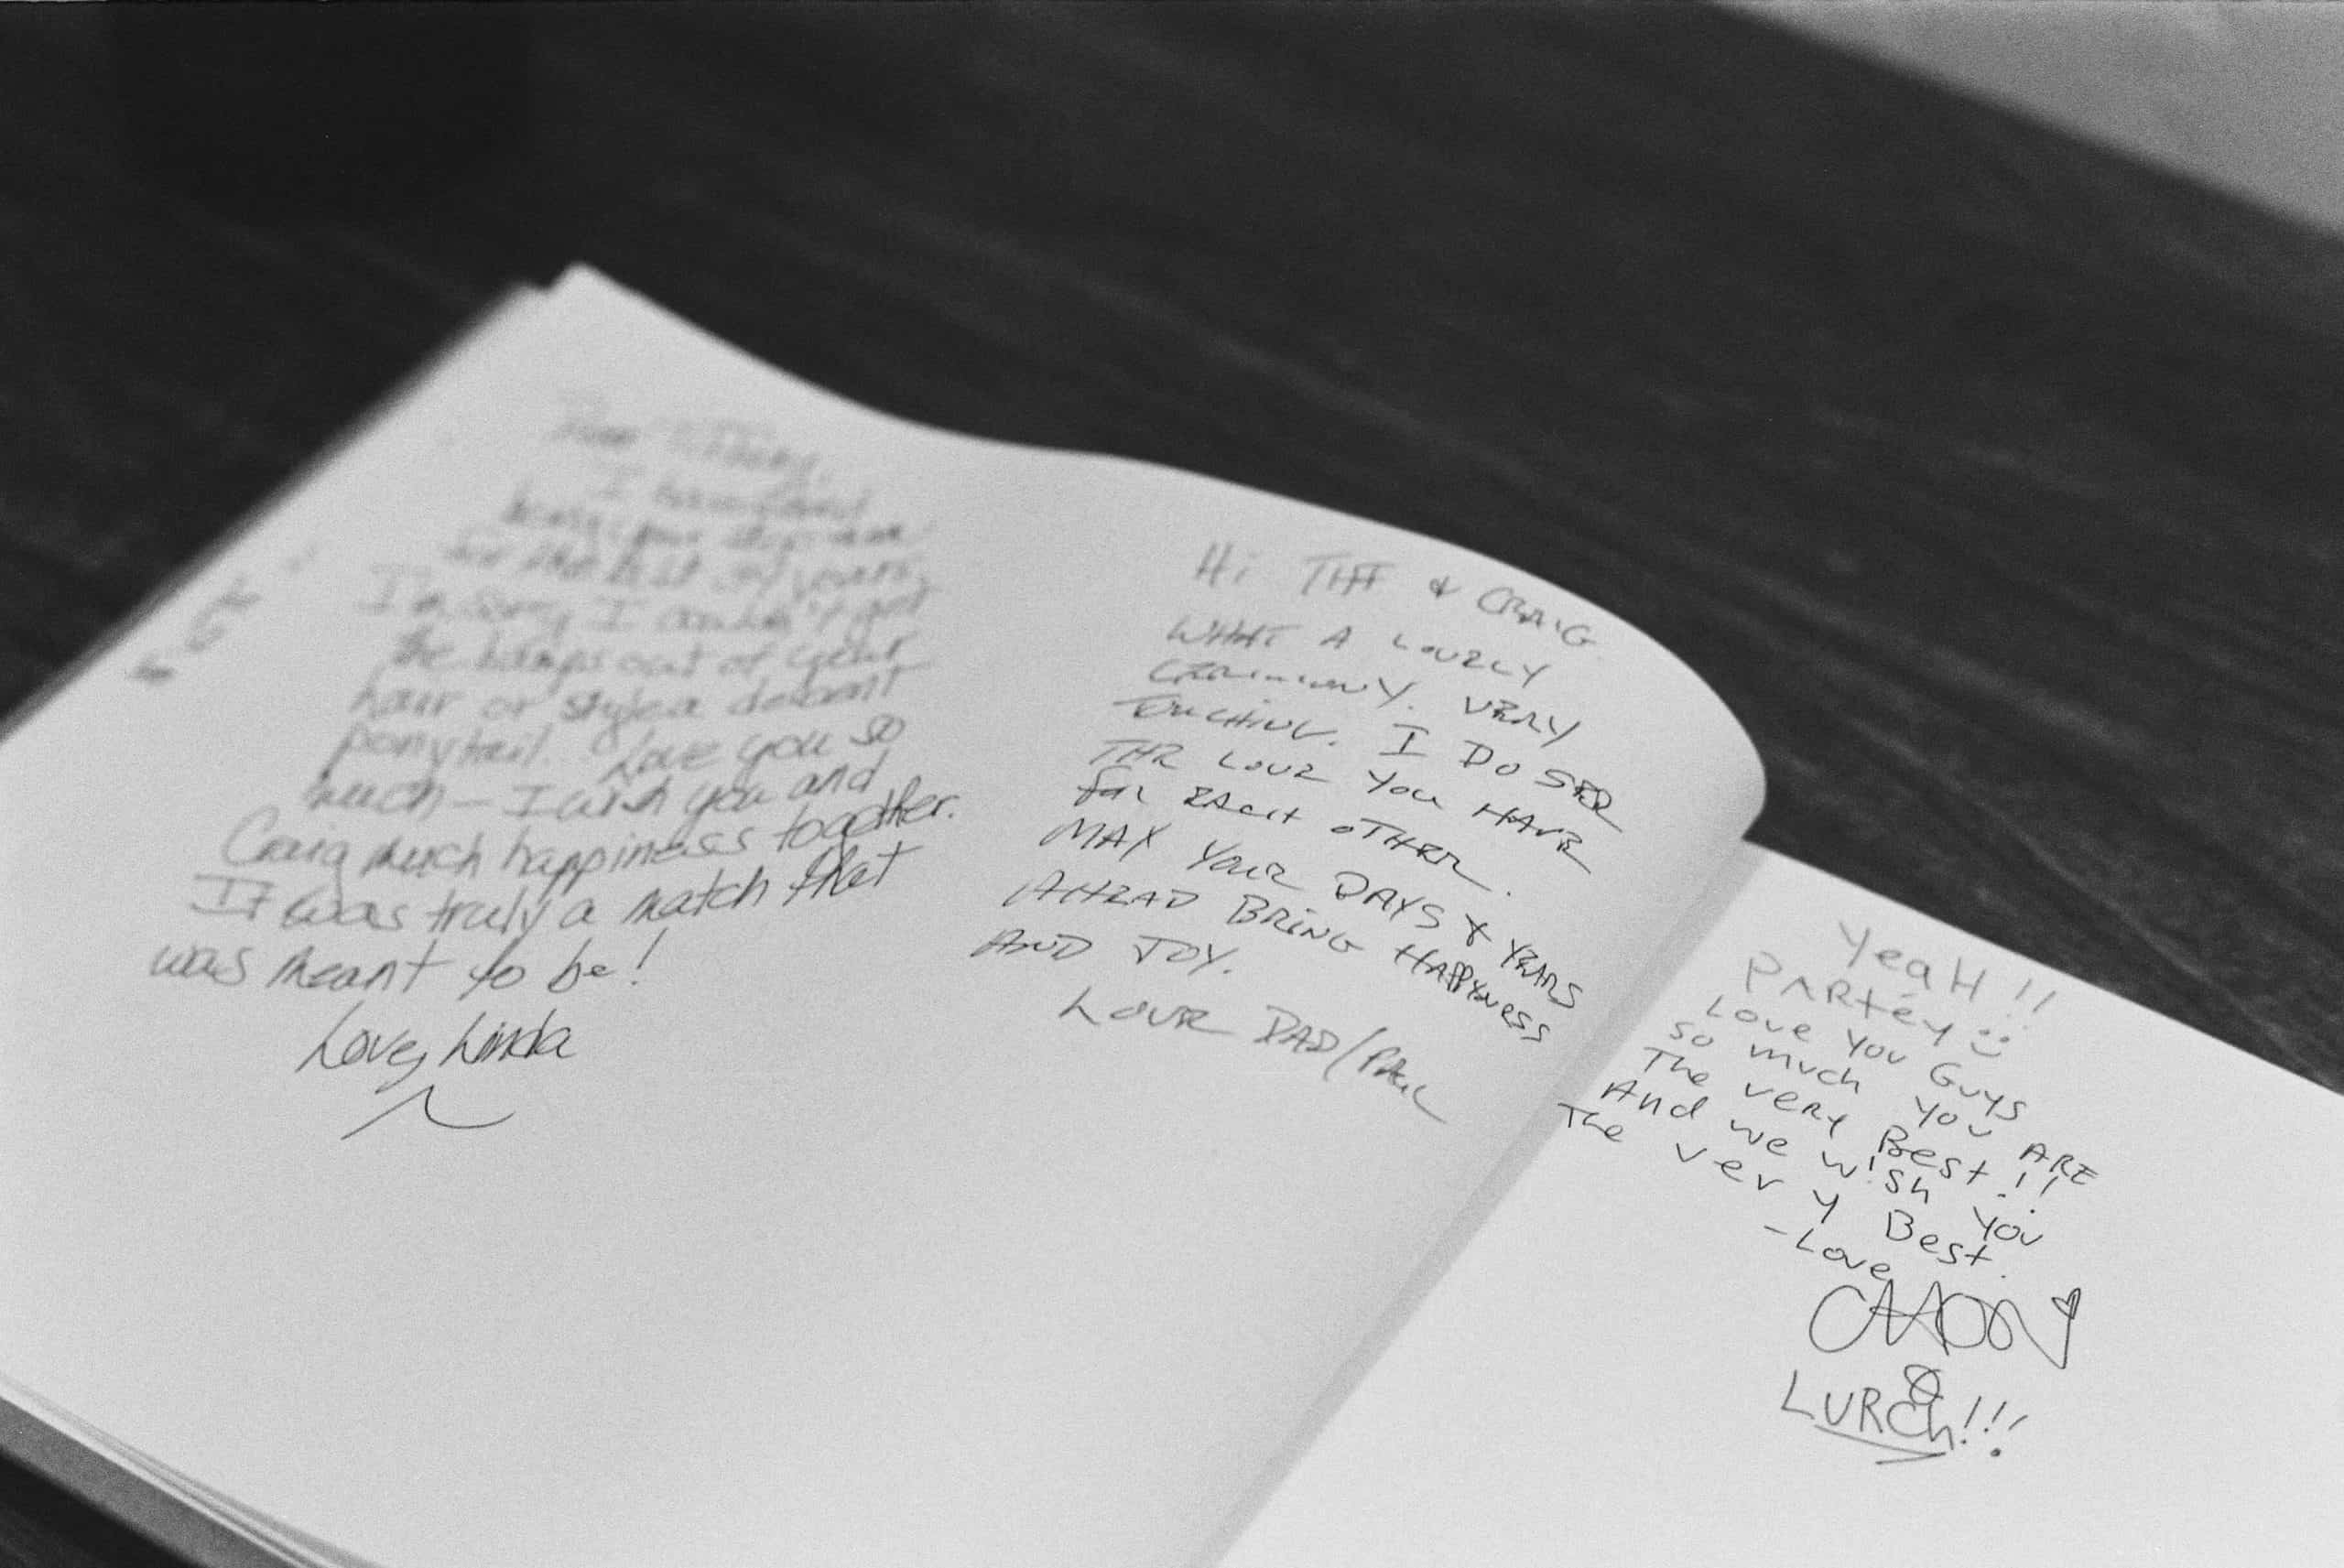 Dear
I have loved
being your step-mom
for the last
I'm sorry I couldn't get
the bumps out of your
hair or style a decent
ponytail. Love you so
much — I wish you and
Craig much happiness together.
It was truly a match that
was meant to be!
Love, Linda
Hi & CRAIG
WHAT A LOVELY
CEREMONY. VERY
TOUCHING. I DO SEE
THE LOVE YOU HAVE
FOR EACH OTHER.
MAY YOUR DAYS & YEARS
AHEAD BRING HAPPYNESS
AND JOY.
LOVE DAD/PAUL
YeaH!!
PARtéy
Love You Guys
so much You ARE
The very Best!!
And we wish You
The very Best.
-Love
&
LURCh!!!